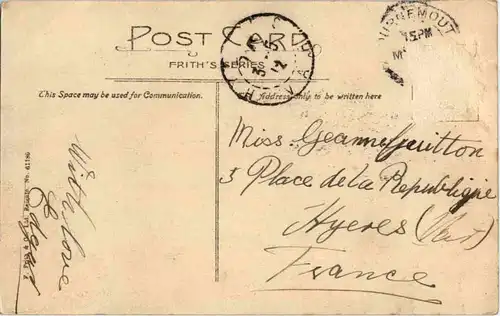 POST CARD
FRITH'S SERIES
This Space may be used for Communication.
Address only to be written here
15 PM
With love
Edgar
Miss. Jeanne Guitton
5 Place de la Republique
Hyeres (Var)
France